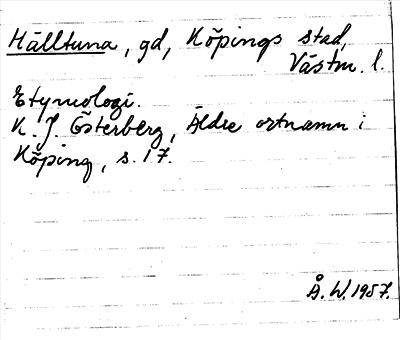 Hälltuna, gd, Köpings stad,
Västm. l.
Etymologi.
K. J. Österberg, Äldre ortnamn i
Köping, s. 17.
Å. W. 1957.